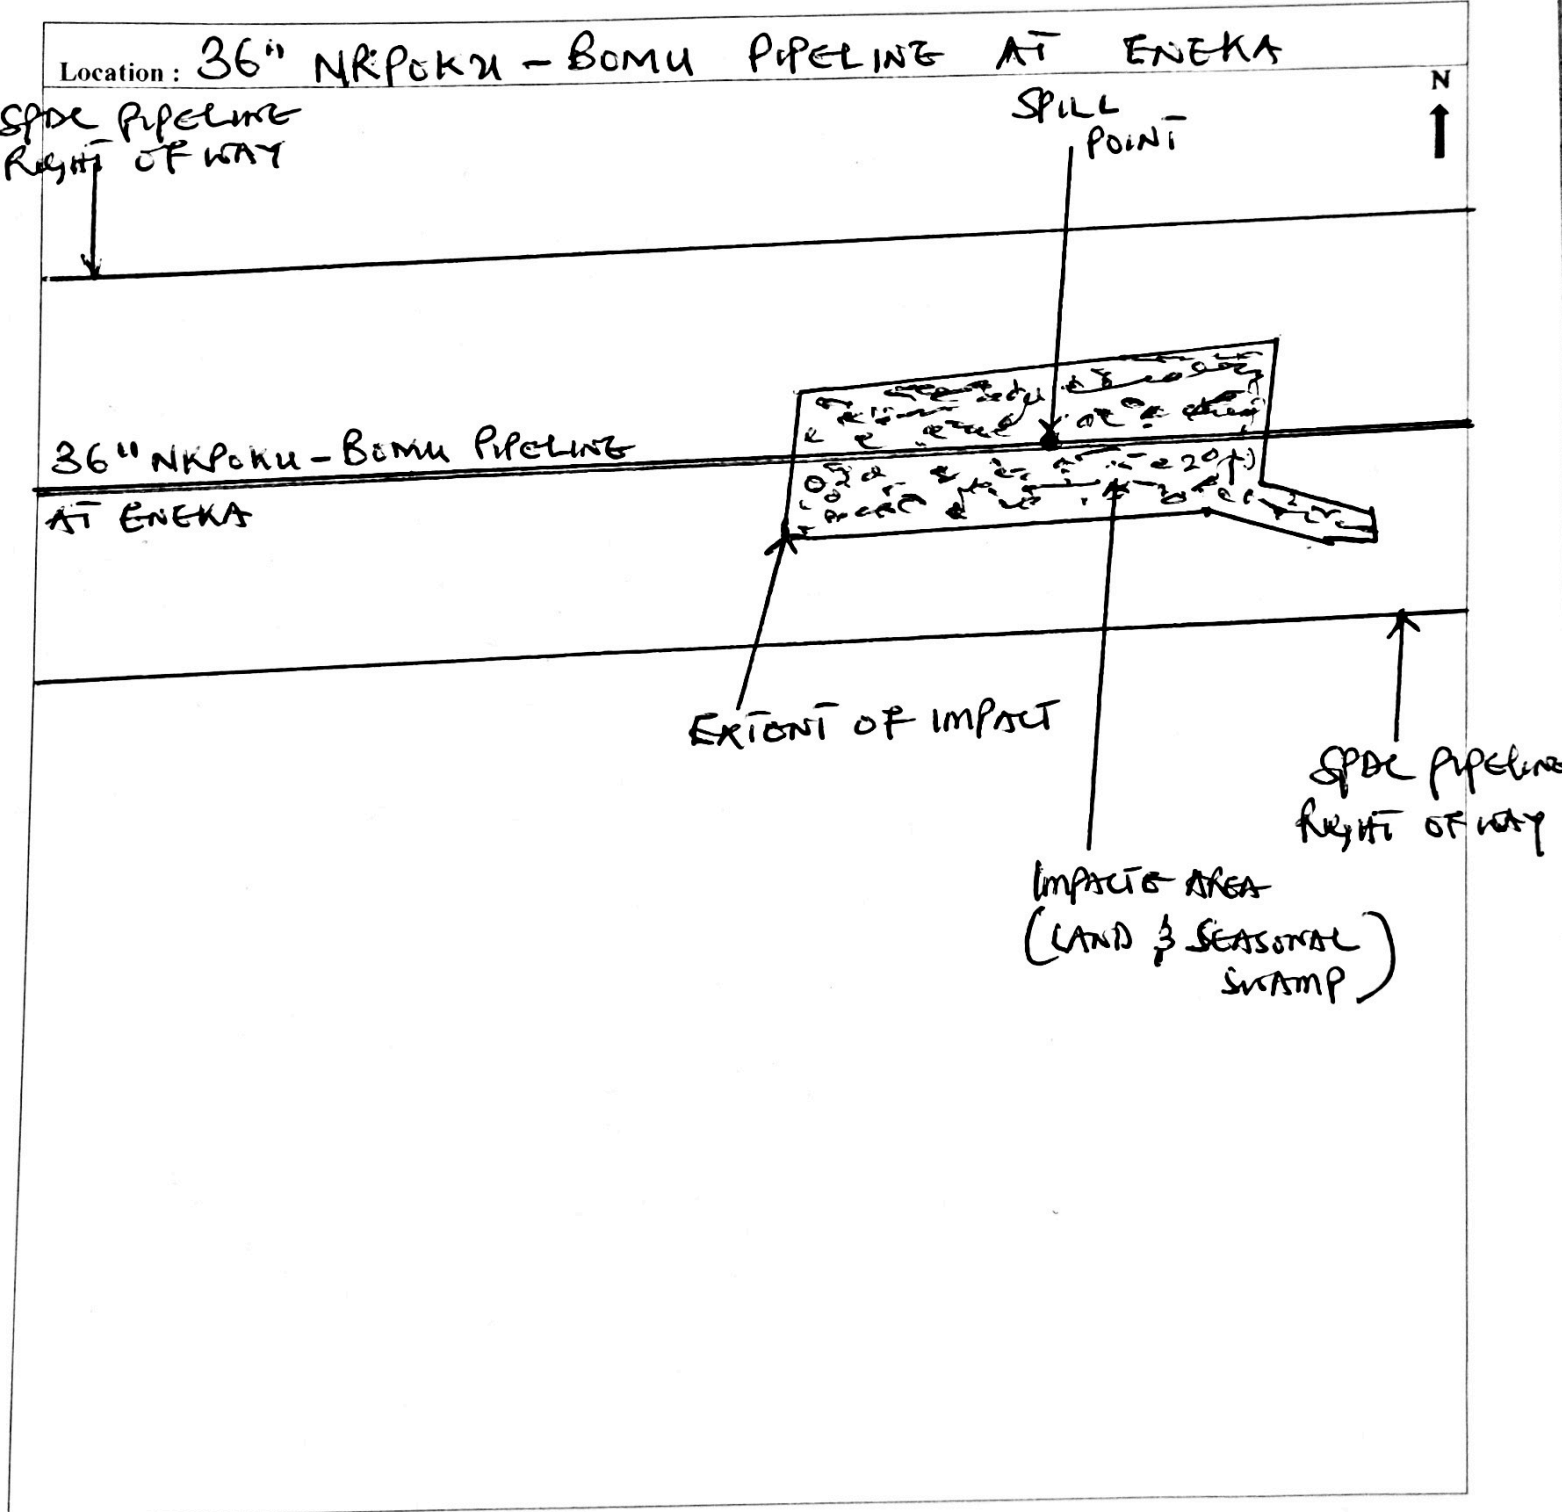 Location : 36" NKPOKU - BOMU PIPELINE AT ENEKA
N
SPDC PIPELINE
RIGHT OF WAY
SPILL
POINT
36" NKPOKU - BOMU PIPELINE
AT ENEKA
EXTENT OF IMPACT
SPDC PIPELINE
RIGHT OF WAY
IMPACTE AREA
(LAND & SEASONAL
SWAMP)